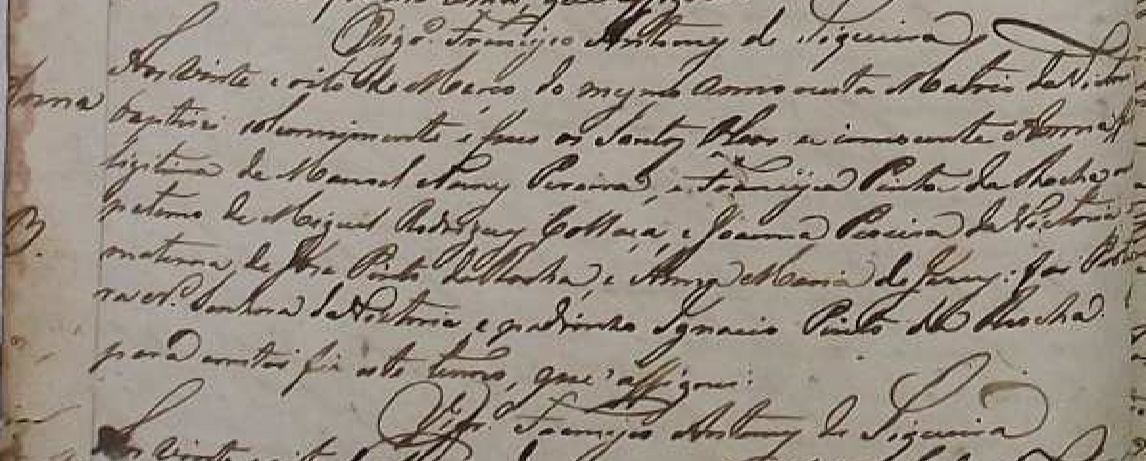 Vigr.º Francisco Antonio de Siqueira
Aos vinte e oito de Março do mesmo anno nesta Matris da
Anna
baptisei solemnemente e pus os Santos Oleos a innocente Anna
legitima de Manoel Nunes Pereira, e Francisca Pinta da Rocha
paterna de Miguel Rodrigues Collaça, e Joanna Pereira da Victoria
B.
materna de José Pinto da Rocha, e Anna Maria de Jesus: foi
ra N. Senhora da Victoria, e padrinho Ignacio Pinto da Rocha
para constar fiz este termo, que assignei:
Vigr.º Francisco Antonio de Siqueira
Aos vinte e oito de